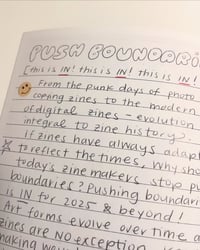 PUSH BOUNDARI
[this is IN! this is IN! this is IN!
From the punk days of photo
coping zines to the modern
of digital zines - evolution
integral to zine history.
if zines have always adapt
to reflect the times, why sho
today's zine makers stop pu
boundaries? Pushing boundari
is IN for 2025 & beyond!
Art forms evolve over time a
zines are NO exception. I
making wou